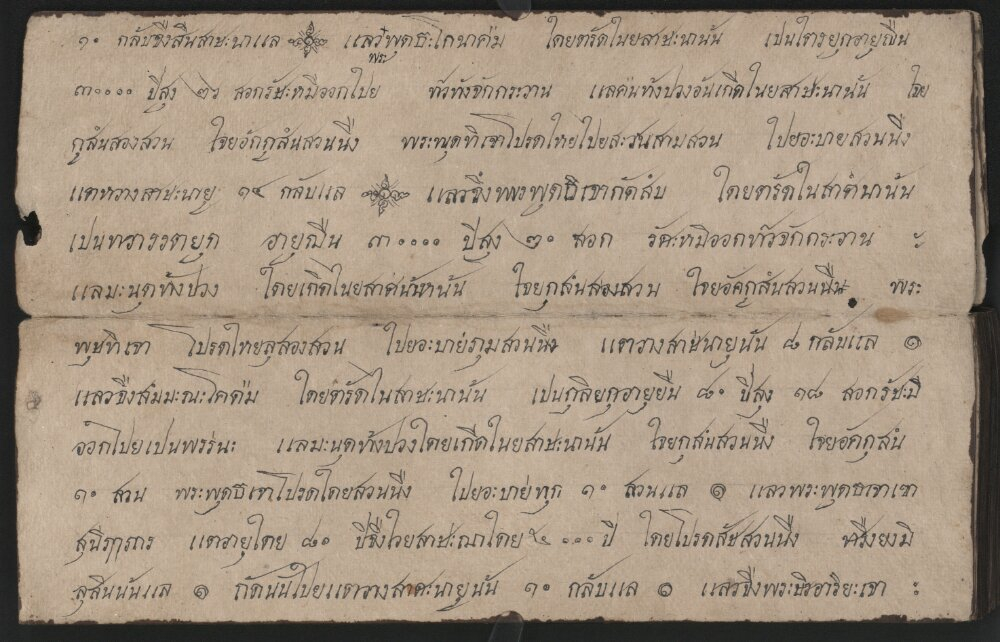 ๑๐ กลับจึงสืนสาษะนาแล แลวพระพุทธะโกนาค่ม โดยตรัดในยสาษะนานัน เปนไตรยุกอายุญืน
๓๐๐๐๐ ปีสุง ๒๖ ลอกรัษะหมีออกไปย ทัวทังจักกระวาน แลคนทังปวงอันเกีดในยสาษะนานัน ใจย
กุสันสองสวน ใจยอักกุสันสวนนึ่ง พระพุดทิเจาโปรดไทยไปยสะวนสามสวน ไปยอะบายสวนนึ่ง
แตหวางสาษะนายู ๑๔ กลับแล แลวจึ่งพระพุดธิเจากัดสับ โดยตรัดในสาศนานัน
เปนทวารวตยุก อายุญืน ๓๐๐๐๐ ปีสุง ๒๐ สอก รัศะหมีออกทัวจักกระวาน ะ
แลมะนุดทังปวง โดยเกีดในยสาศนานัน ใจยกุสันสองสวน ใจยอัคกุสันสวนนึ่ง พระ
พุทธิเจา โปรดไทยลุสองสวน ไปยอะบายภุมสวนนึ่ง แตวางสาษนายูนัน ๘ กลับแล ๑
แลวจึ่งสัมมะณะโคค่ม โดยตรัดในสาษะนานัน เปนกุลิยุกอายุยืน ๘๐ ปีสุง ๑๘ สอกรัษะมี
ออกไปยเปนพรรนะ แลมะนุดทังปวงโดยเกีดในยสาษะนานัน ใจยกุสันสวนนึ่ง ใจยอัคกุสัน
๑๐ สวน พระพุดธิเจาโปรดโดยสวนนึ่ง ไปยอะบายทุก ๑๐ สวนแล ๑ แลวพระพุดธเจาเขา
สุนิราภาร แตอายุโดย ๘๐ ปีจึ่งไวยสาษะณาโดย ๕๐๐๐ ปี โดยโปรดสัษสวนนึ่ง ยังมี
ลุสินนันแล ๑ กัดนันไปยแตวางสาศะนายูนัน ๑๐ กลับแล ๑ แลวจึ่งพระษิรอาริยะเจา ะ